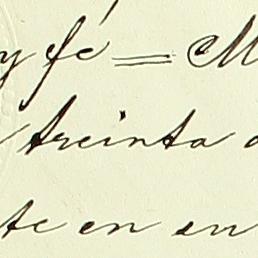 y fé = M
treinta
te en en